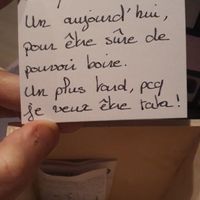 Un aujourd'hui,
pour être sûre de
pouvoir boire.
Un plus tard, pcq
je veux être tata!